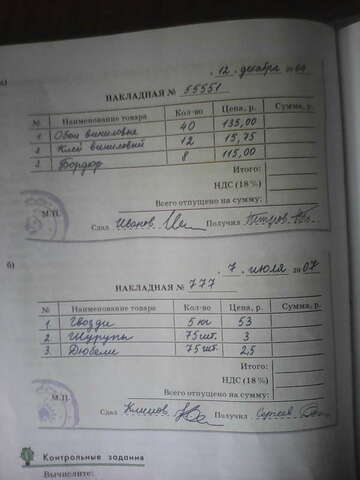 а)
12 декабря 2004
НАКЛАДНАЯ № 55551
№ Наименование товара Кол-во Цена, р. Сумма, р.
1 Обои виниловые 40 135,00
2 Клей виниловый 12 15,75
3 Бордюр 8 115,00
Итого:
НДС (18%)
Всего отпущено на сумму:
М.П.
Сдал Иванов Получил Петров
б)
7 июля 2007
НАКЛАДНАЯ № 777
№ Наименование товара Кол-во Цена, р. Сумма, р.
1 Гвозди 5 кг 53
2. Шурупы 75 шт. 3
3. Дюбели 75 шт. 2,5
Итого:
НДС (18%)
Всего отпущено на сумму:
М.П.
Сдал Климов Получил Сергеев
Контрольные задания
Вычислите: